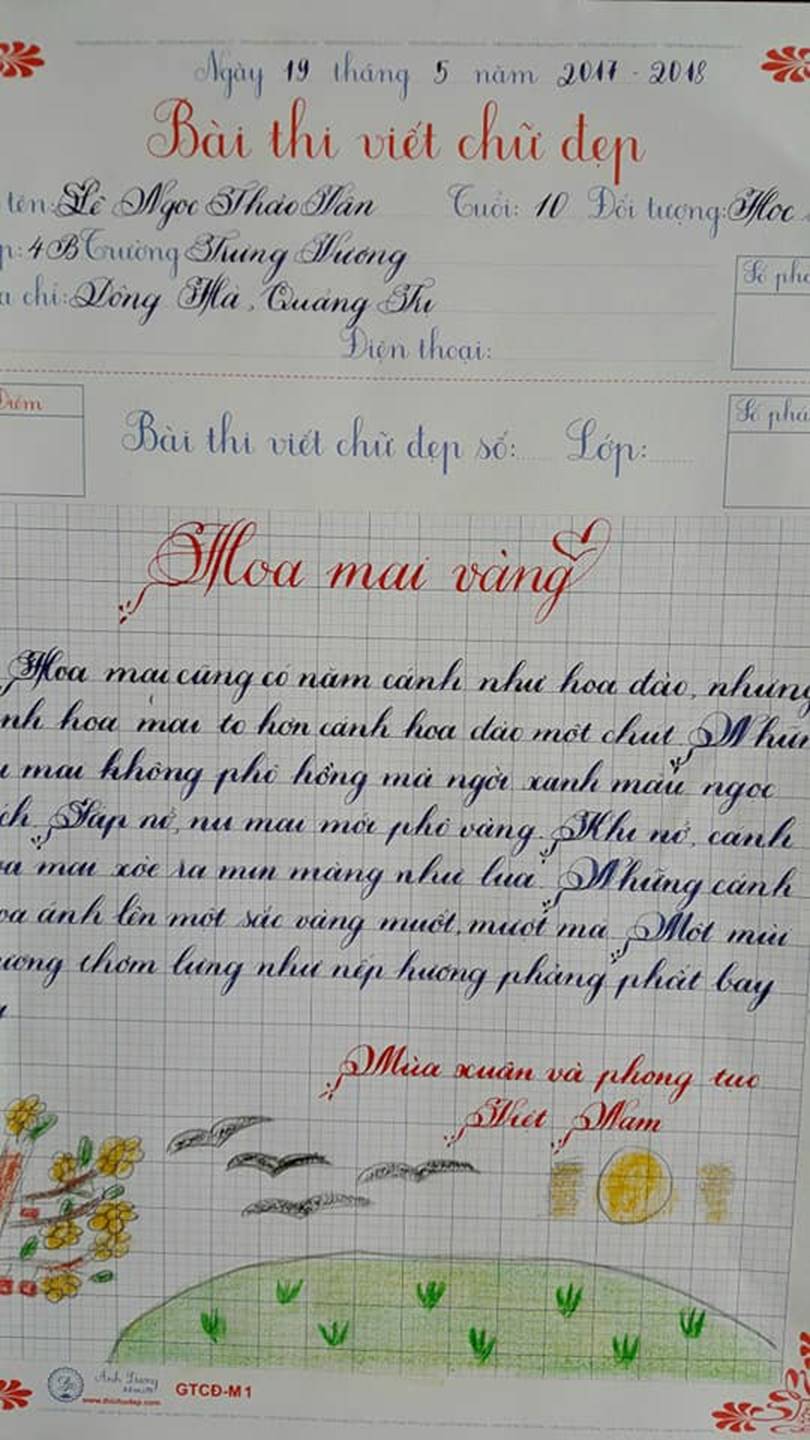 Ngày 19 tháng 5 năm 2017 - 2018
Bài thi viết chữ đẹp
tên: Lê Ngọc Thảo Vân Tuổi: 10 Đối tượng: Học
4B Trường Trưng Vương
chỉ: Đông Hà, Quảng Trị
Số
Điện thoại:
Điểm
Bài thi viết chữ đẹp số: Lớp:
Số
Hoa mai vàng
Hoa mai cũng có năm cánh như hoa đào, nhưng
hoa mai to hơn cánh hoa đào một chút
mai không phô hồng mà ngời xanh màu ngọc
Sắp nở, nụ mai mới phô vàng. Khi nở, cánh
mai xòe ra mịn màng như lụa. Những cánh
ánh lên một sắc vàng muốt, mượt mà. Một mùi
thơm lựng như nếp hương phảng phất bay
Mùa xuân và phong tục
Việt Nam
GTCĐ-M1